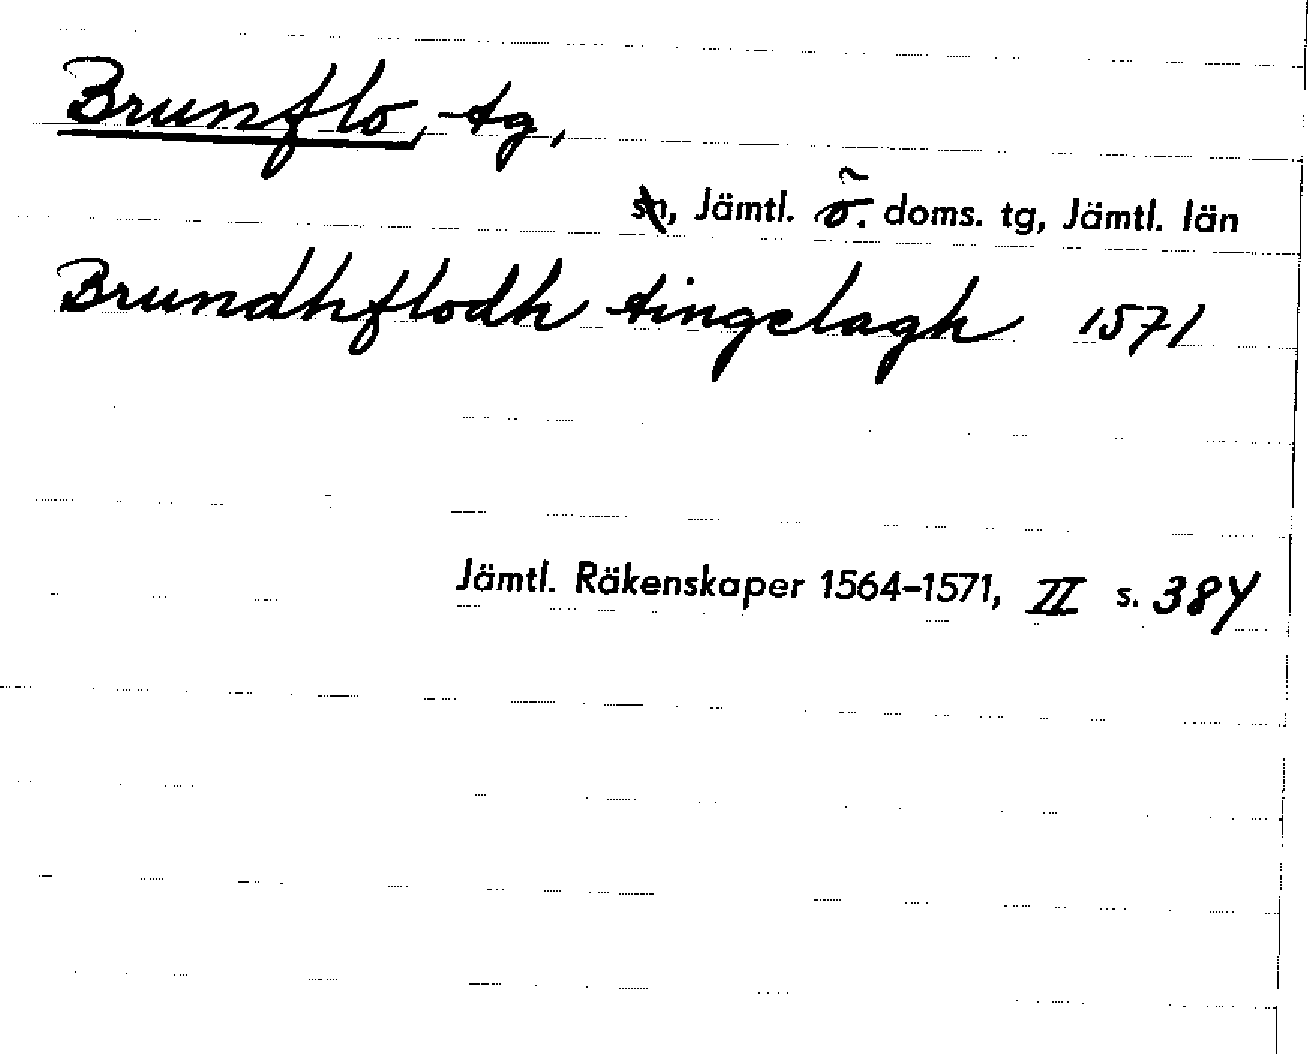 Brunflo, -tg,
sn, Jämtl. ö. doms. tg, Jämtl. län
Brundhflodh tingelagh 1571
Jämtl. Räkenskaper 1564-1571, II s. 384